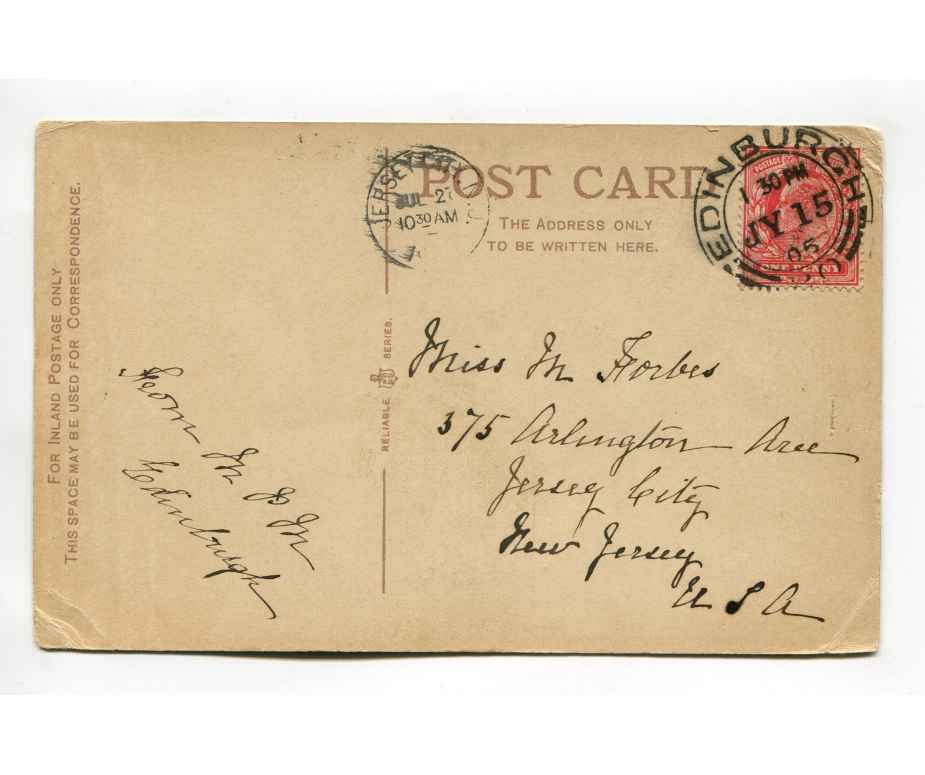 FOR INLAND POSTAGE ONLY
THIS SPACE MAY BE USED FOR CORRESPONDENCE.
From M B M
Edinburgh
RELIABLE SERIES.
POST CARD
THE ADDRESS ONLY
TO BE WRITTEN HERE.
JERSEY
JUL 2
1030AM
EDINBURGH
1 30 PM
JY 15
05
POSTAGE
ONE PENNY
Miss M Forbes
375 Arlington Ave
Jersey City
New Jersey
U S A